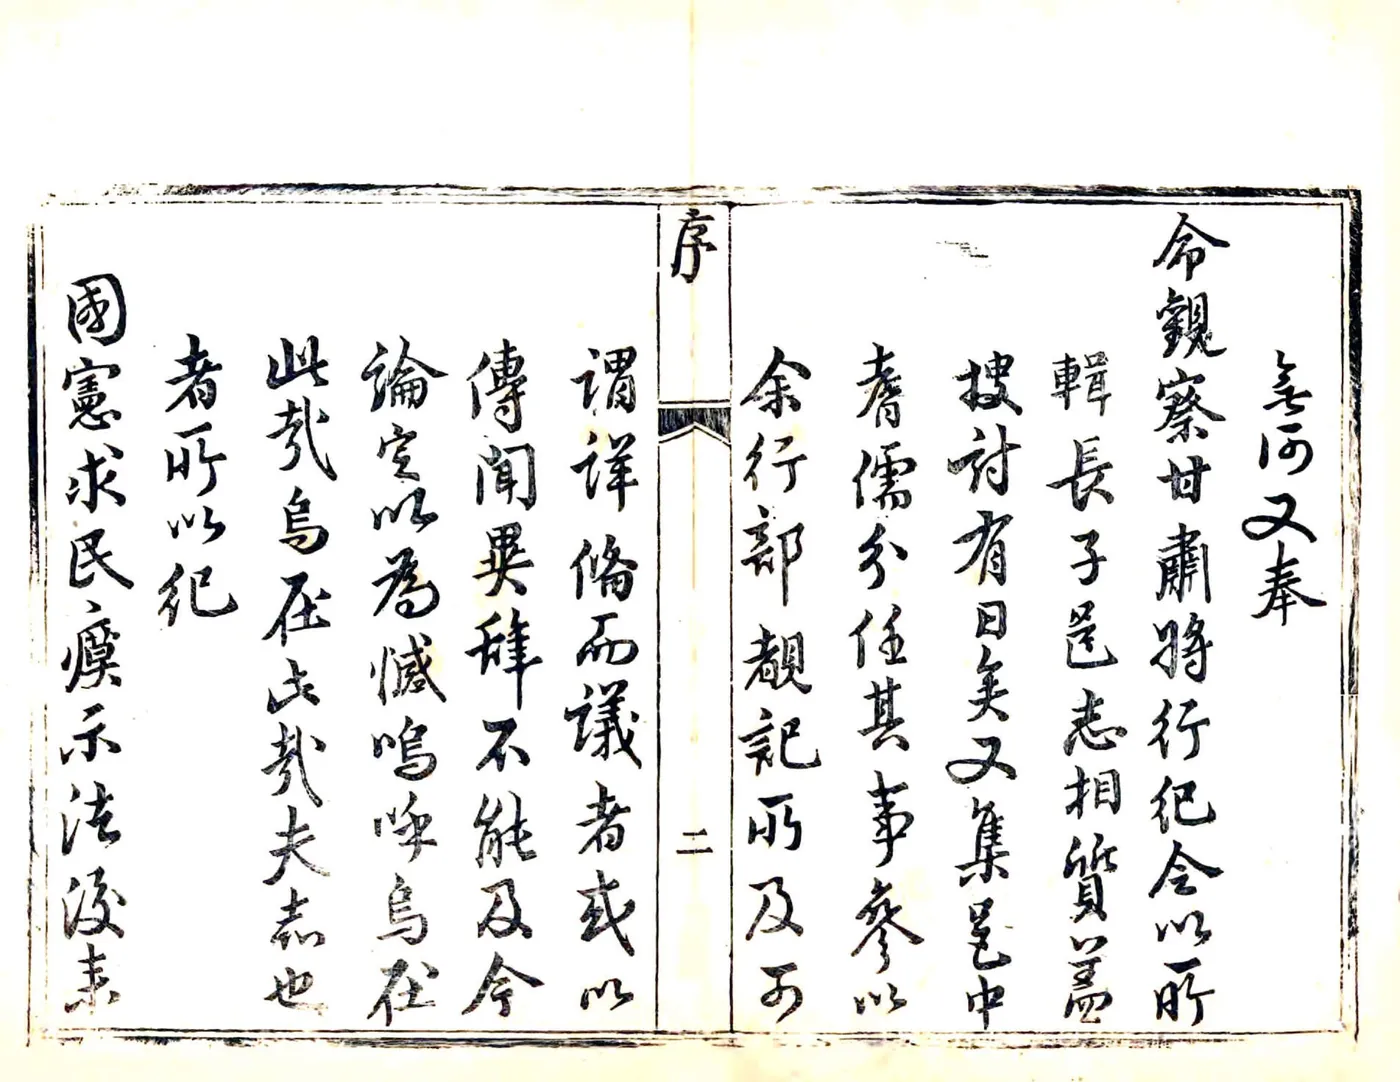 無何又奉
命觀察甘肅將行紀令以所
輯長子邑志相質蓋
搜討有日矣又集邑中
耆儒分任其事參以
余行部覩記所及可
序
二
謂詳備而議者或以
傳聞異辭不能及今
論定以為憾嗚呼烏在
此哉烏在此哉夫志也
者所以紀
國憲求民瘼示法後来